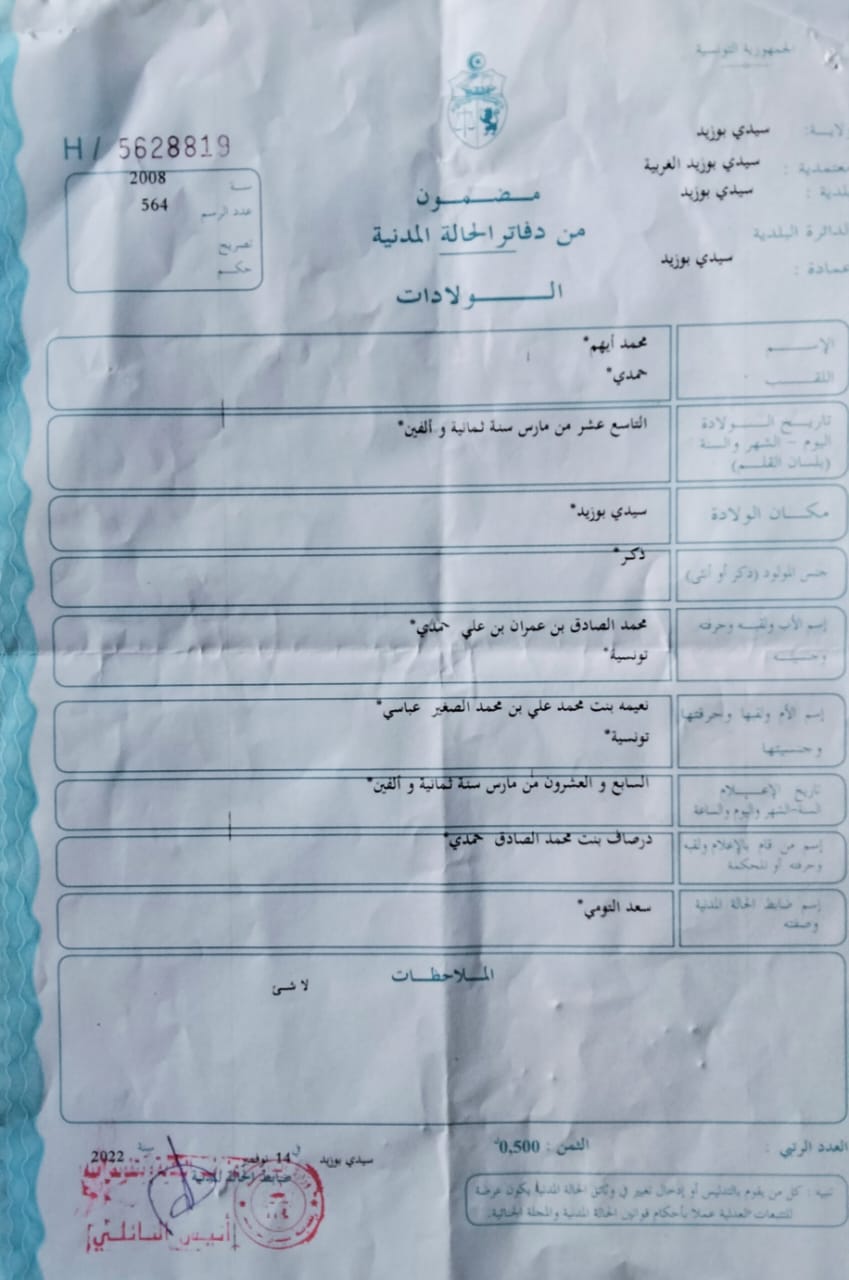 الجمهورية التونسية
ولاية: سيدي بوزيد
معتمدية : سيدي بوزيد الغربية
بلدية : سيدي بوزيد
الدائرة البلدية
عمادة : سيدي بوزيد
H / 5628819
سنة 2008
عدد الرسم 564
تصريح
حكم
مضمون
من دفاتر الحالة المدنية
الولادات
الإسم محمد أيهم*
اللقب حمدي*
تاريخ الولادة
اليوم - الشهر والسنة
(بلسان القلم)
التاسع عشر من مارس سنة ثمانية و ألفين*
مكان الولادة سيدي بوزيد*
جنس المولود (ذكر أو أنثى) ذكر*
إسم الأب ولقبه وحرفته محمد الصادق بن عمران بن علي حمدي*
وجنسيته تونسية*
إسم الأم ولقبها وحرفتها نعيمه بنت محمد علي بن محمد الصغير عباسي*
وجنسيتها تونسية*
تاريخ الإعلام
السنة-الشهر واليوم والساعة
السابع و العشرون من مارس سنة ثمانية و ألفين*
إسم من قام بالإعلام ولقبه
وحرفته أو المحكمة
درصاف بنت محمد الصادق حمدي*
إسم ضابط الحالة المدنية
وصفته
سعد التومي*
الملاحظات
لا شئ
العدد الرتبي :
الثمن : 0,500د
سيدي بوزيد في 14 نوفمبر سنة 2022
ضابط الحالة المدنية
تنبيه : كل من يقوم بالتدليس أو إدخال تغيير في وثائق الحالة المدنية يكون عرضة
للتتبعات العدلية عملا بأحكام قوانين الحالة المدنية والمجلة الجنائية.